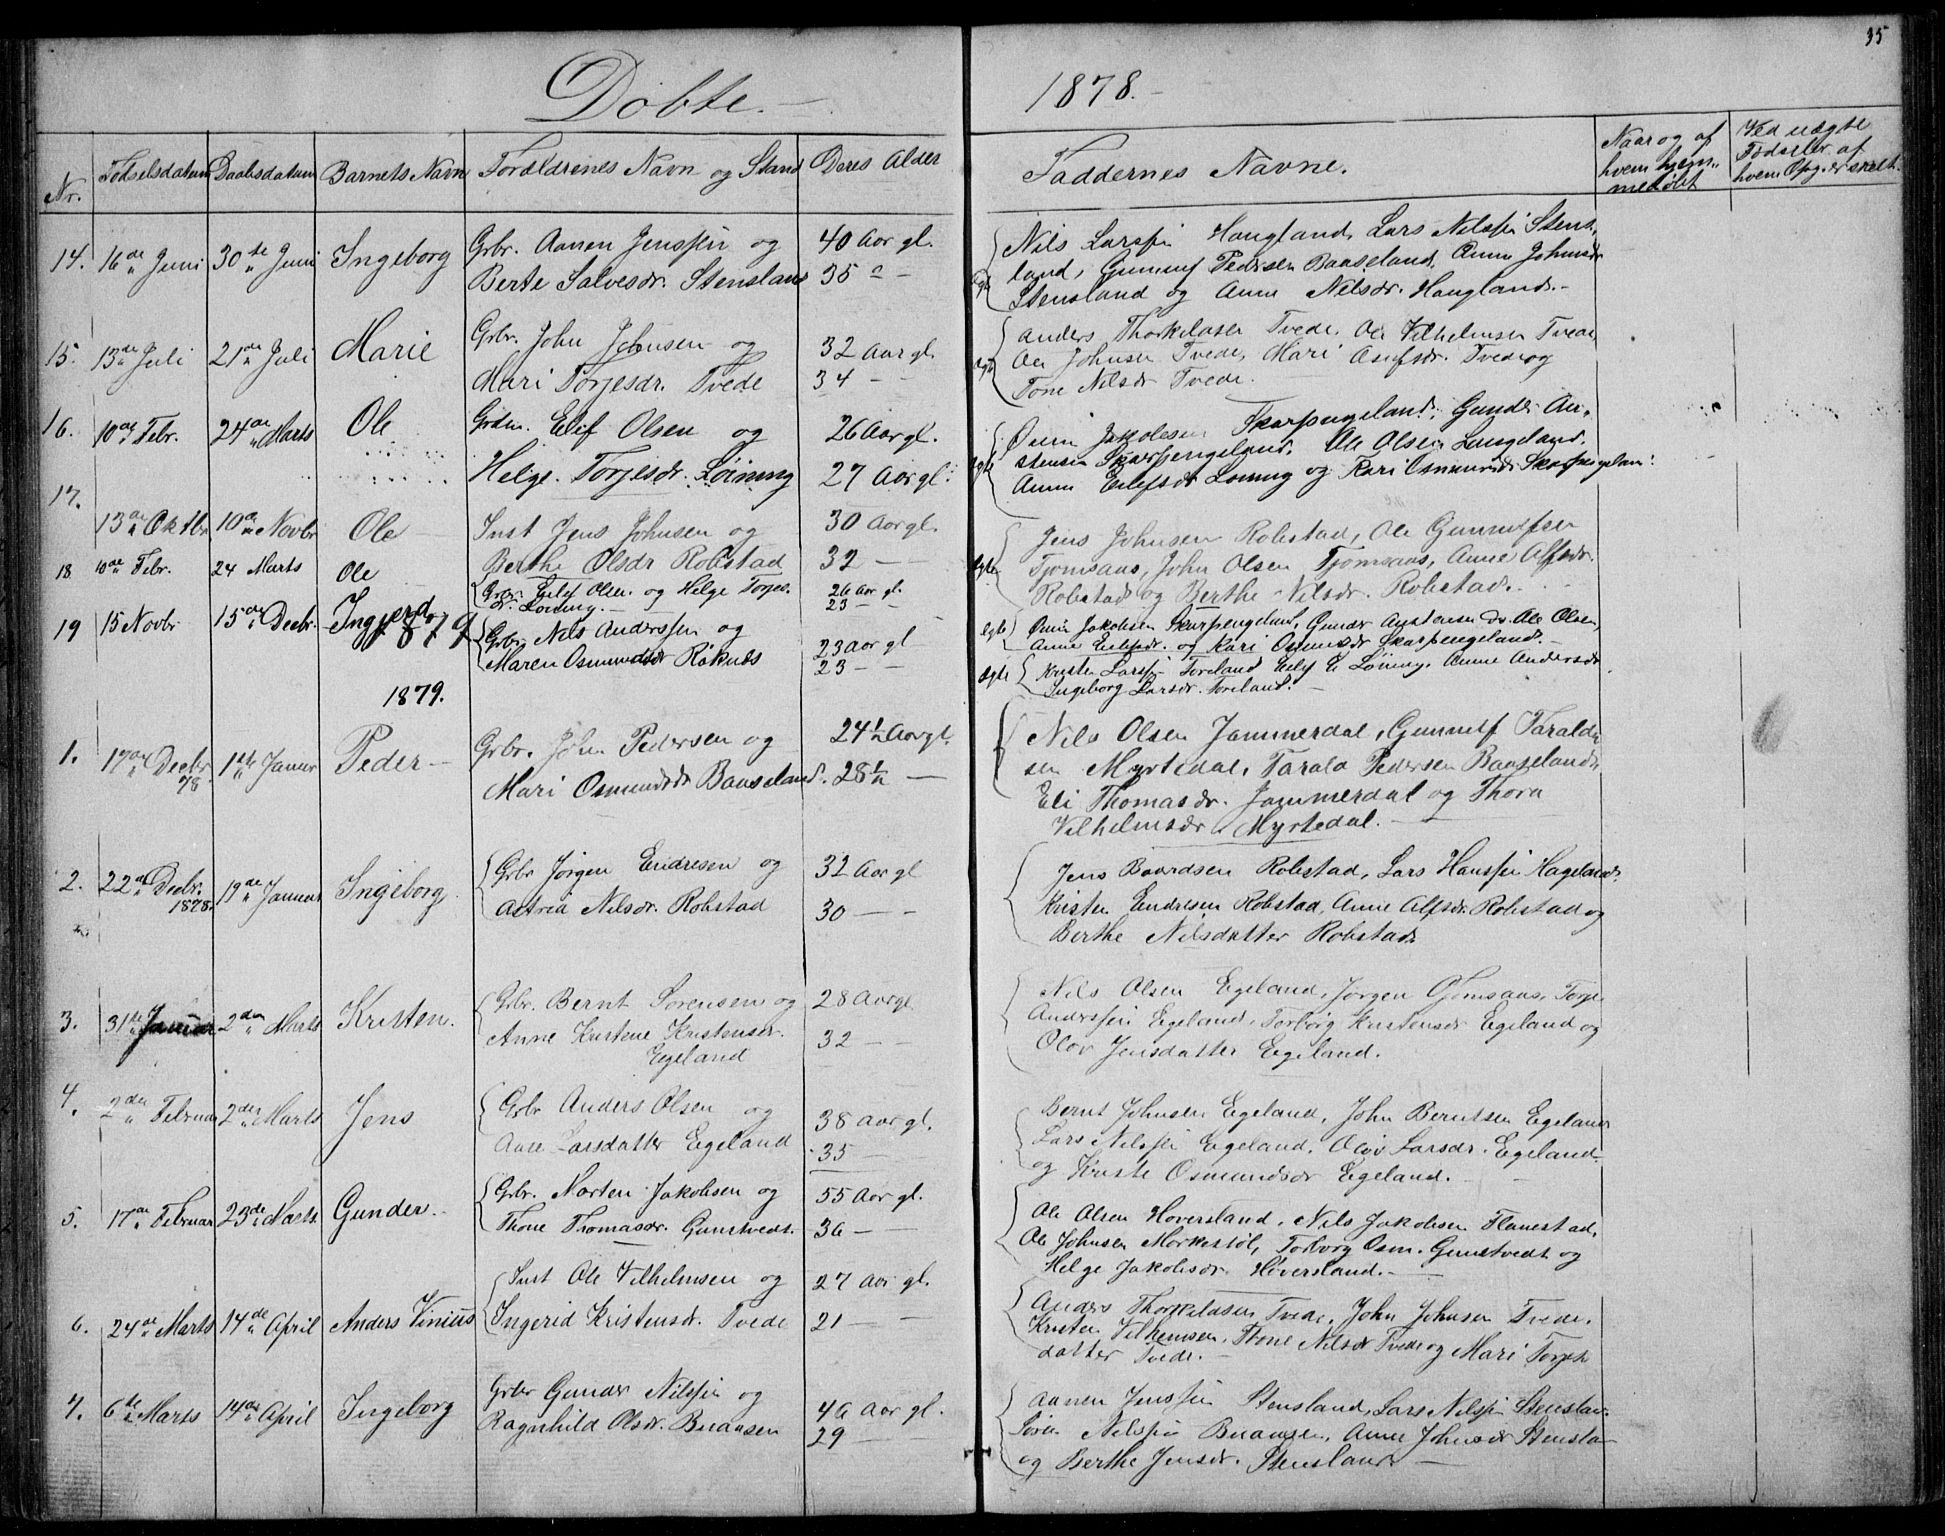 35
Døbte. 1878.
Nr. Fødselsdatum Daabsdatum Barnets Navn Forældrenes Navn og Stand Deres Alder
Faddernes Navne.
Naar og af
hvem hjem-
medøbt
Ved uægte
Fødsler af
hvem Opg. er skelt.
14. 16de Juni 30te Juni Ingeborg Grbr. Aanen Jenssen og 40 Aar gl.
Berte Salvesdr. Stensland 35 " -
Nils Larssen Haugland, Lars Nilssen Stens-
land, Gunnuf Pedersen Baaseland, Anne Johnsdr
Stensland og Anne Nelsdr. Haugland.-
15. 13de Juli 21de Juli Marie Grbr. John Johnsen og 32 Aar gl.
Mari Torjesdr. Tvede 34 - -
Anders Thorkildsen Tvede, Ole Vilhelmsen Tvede,
Ole Johnsen Tvede, Mari Tvede og
Tone Nilsdr Tvede.
16. 10de Febr. 24de Marts Ole Grdm. Elif Olsen og 26 Aar gl.
Helge Torjesdr. Løining 27 Aar gl.
Jakobsen Skarpengeland, Gunder Au-
stensen Skarpengeland, Ole Olsen Langeland,
Anne Eilefsdr Løning og Kari Osmundsdr Skarpengeland.
17. 13de Oktbr 10de Novbr Ole Inst Jens Johnsen og 30 Aar gl.
Berthe Olsdr Robstad 32 -
ægte Jens Johnsen Robstad, Ole Gunnufsen
Tjomsaas, John Olsen Tjomsaas, Anne Alfsdr.
Robstad og Berthe Nilsdr. Robstad.
18 10de Febr. 24 Marts Ole Grbr. Eilef Olsen og Helge Torjes- 26 Aar gl.
dr. Løining.- 23 - -
ægte Jakobsen Skarpengeland, Gunder Austensen do. Ole Olsen,
Anne Eilefsdr. og Kari Osmundsdr Skarpengeland.-
19 15 Novbr 15de Decbr. Ingjerd 1879 Grbr. Nils Anderssen og 23 Aar gl
Maren Osmundsdr Røknes 23 - -
ægte Kristen Larssen Foreland Eilef E Løining. Anne Andersdr
Ingeborg Larsdr. Foreland.-
1879.
1. 17de Decbr 78 1ste Januar Peder- Grbr. John Pedersen og 24½ Aar gl.
Mari Osmundsdr Baaseland. 28½ -
Nils Olsen Jammerdal, Gunnulf Tarald-
sen Myrtedal, Tarald Pedersen Baaseland,
Eli Thomasdr. Jammerdal og Thora
Vilhelmsdr Myrtedal.-
2. 22de Decbr. 1878. 19de Januar Ingeborg. Grbr Jørgen Endresen og 32 Aar gl
Astrid Nilsdr. Robstad 30 - -
Jens Baardsen Robstad, Lars Hanssen Hageland,
Kristen Endresen Robstad, Anne Alfsdr. Robstad og
Berthe Nilsdatter Robstad
3. 31te Januar 2den Marts Kristen. Grbr. Bernt Sørensen og 28 Aar gl
Anne Kristine Kristensdr. 32 - -
Egeland
Nils Olsen Egeland, Jørgen Tjomsaas, Torje
Anderssen Egeland, Torborg Kristensdr Egeland og
Olav Jensdatter Egeland.
4. 2den Februar 2den Marts Jens Grbr Anders Olsen og 38 Aar gl.
Aase Larsdatter Egeland 35 -
Bernt Johnsen Egeland, John Berntsen Egeland
Lars Nilssen Egeland, Olav Larsdr. Egeland
og Kirste Osmundsdr Egeland.
5. 17de Februar 23de Marts. Gunder.- Grbr. Morten Jakobsen og 55 Aar gl.
Thone Thomasdr. Gunstvedt. 36 - -
Ole Olsen Høversland, Nils Jakobsen Flanestad,
Ole Johnsen Mørkestøl, Torborg Osm. Gunstvedt og
Helge Jakobsdr. Høversland.-
6. 24de Marts 14de April Anders Vinius Inst Ole Vilhelmsen og 27 Aar gl.
Ingerid Kristensdr. Tvede 21 - -
Anders Thorkildsen Tvede, John Johnsen Tvede,
Kristen Vilhemsen, Thone Nilsdr Tvede og Mari Torjes
datter Tvede.-
7. 6te Marts 14de April Ingeborg Grbr Gunder Nilssen og 46 Aar gl.
Ragnhild Olsdr. Buaasen 29 -
Aanen Jenssen Stensland, Lars Nilssen Stenslan-
Søren Nilssen Buaasen, Anne Johnsdr Stensla-
og Berthe Jensdr. Stensland -